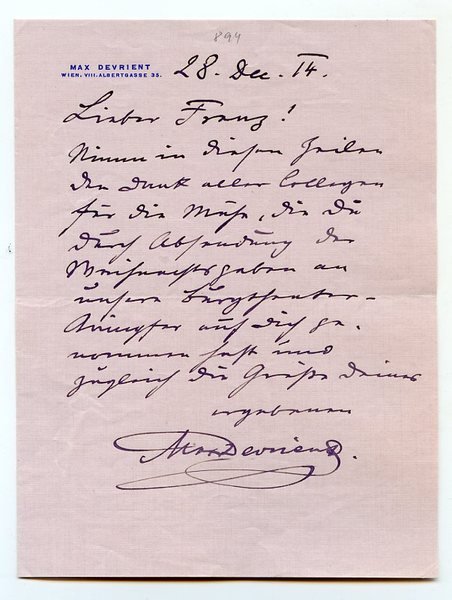 894
MAX DEVRIENT
WIEN, VIII. ALBERTGASSE 35.
28. Dec. 14.
Lieber Franz!
Nimm in diesen Zeilen
den Dank aller Collegen
für die Mühe, die Du
durch Absendung der
Weihnachtsgaben an
unsere Burgtheater-
Kämpfer auf Dich ge-
nommen hast und
zugleich die Grüße Deines
ergebenen
Max Devrient.